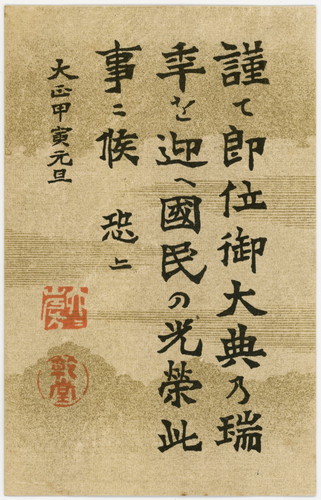 謹て即位御大典乃瑞
年を迎へ國民の光榮此
事ニ候 恐上
大正甲寅元旦